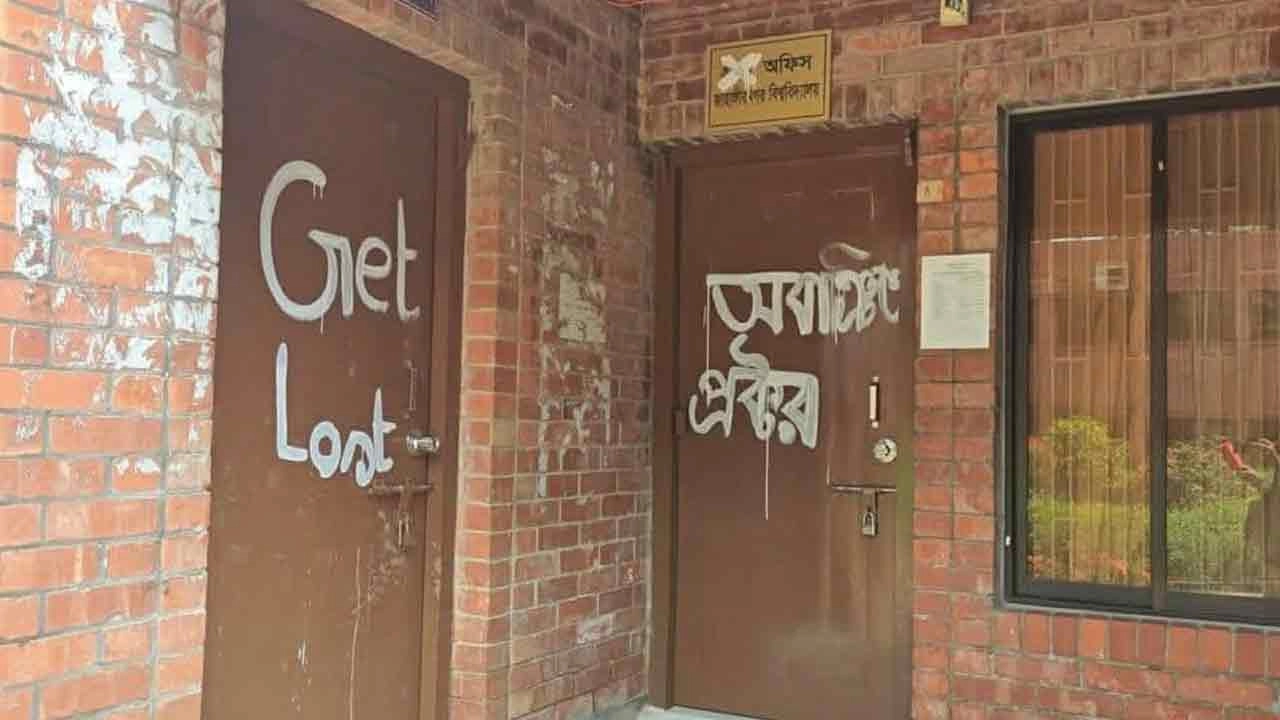 Get
Lost
অফিস
জাহাঙ্গীরনগর বিশ্ববিদ্যালয়
অবাঞ্ছিত
প্রক্টর